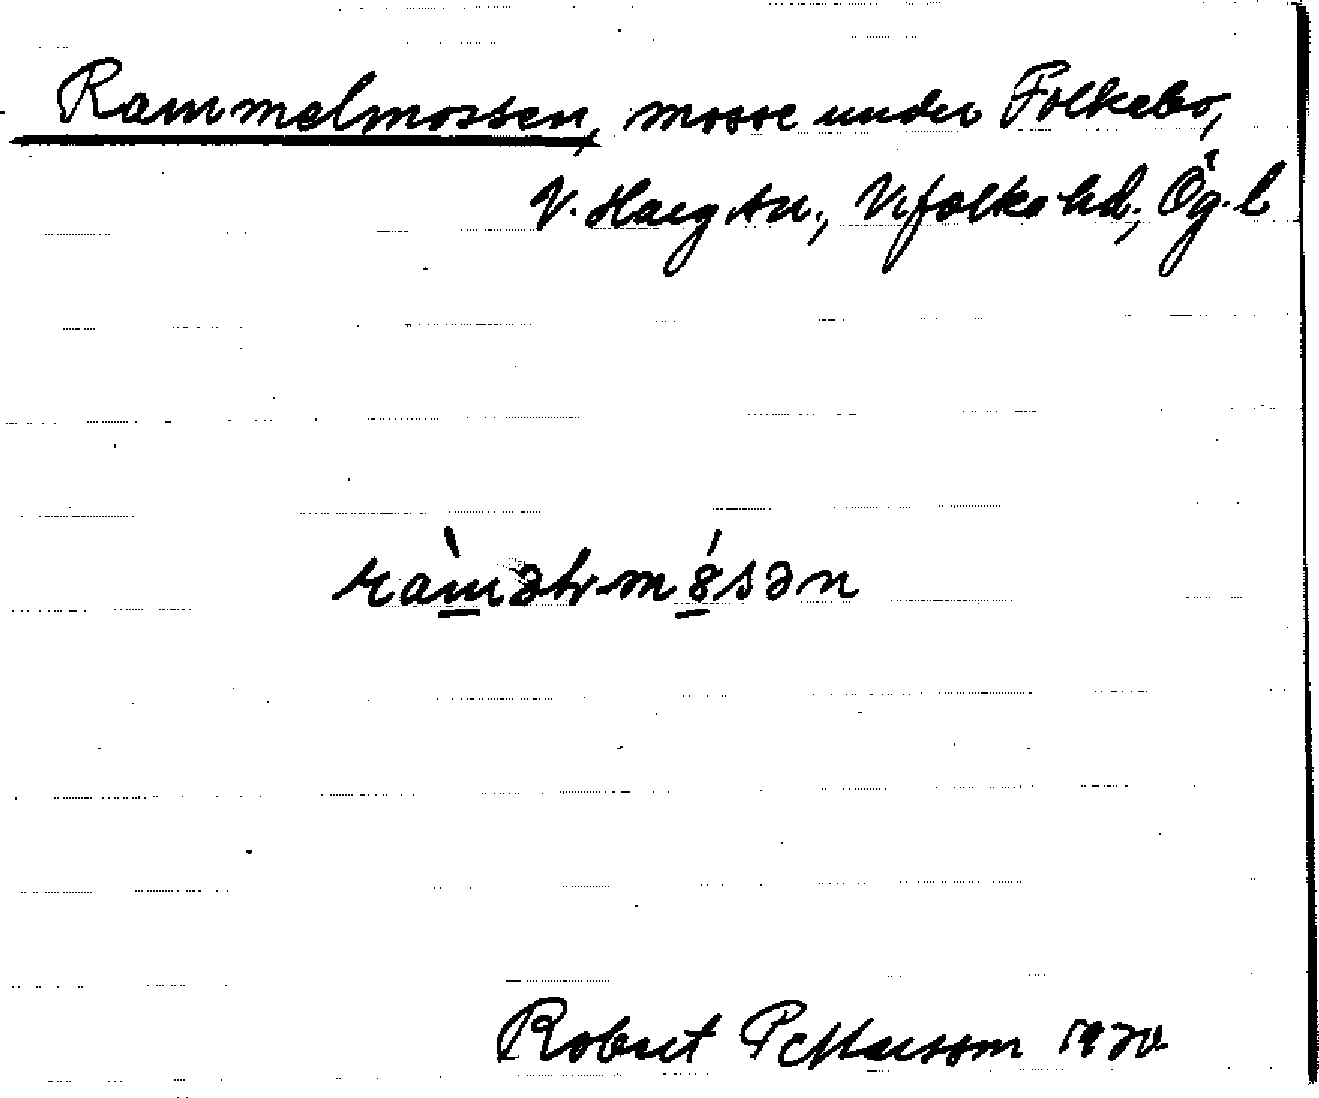 Rammelmossen, mosse under Folkebo,
V. Harg sn., Vifolka hd., Ög. l
ràməlmósən
Robert Pettersson 1930